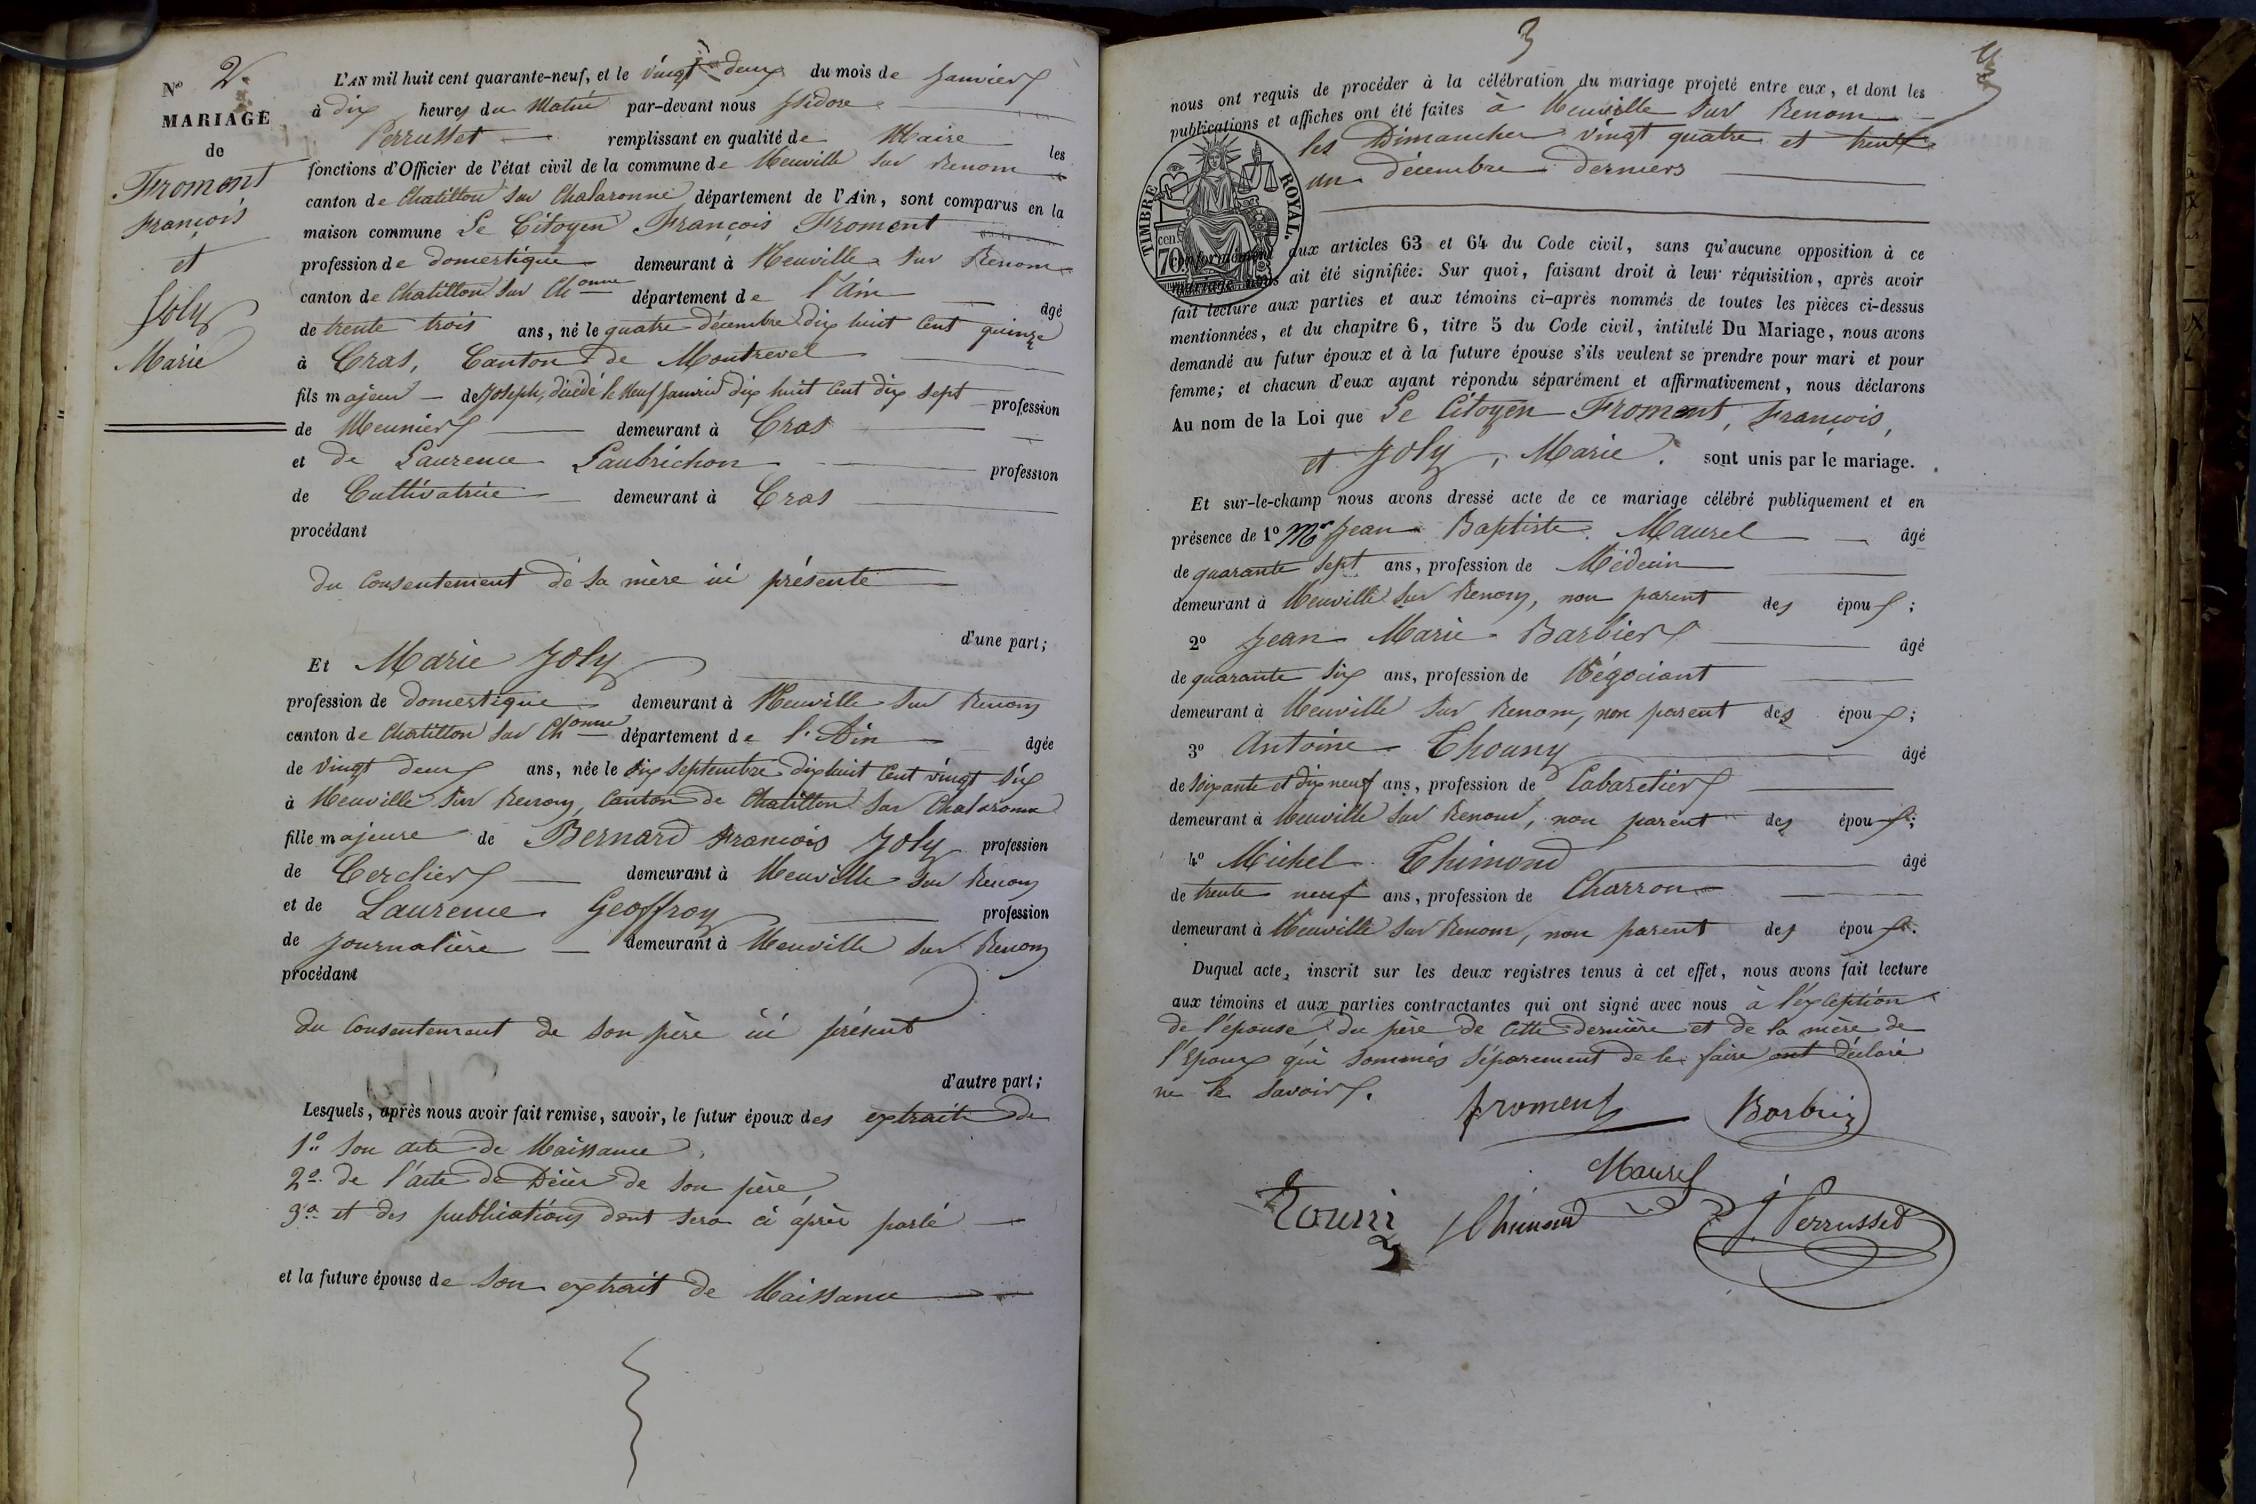 Nº 2.
MARIAGE
de
Froment
François
et
Joly
Marie
L'AN mil huit cent quarante-neuf, et le vingt deux du mois de Janvier
à dix heures du Matin par-devant nous Isidore
Perrusset remplissant en qualité de Maire les
fonctions d'Officier de l'état civil de la commune de Neuville sur Renom
canton de Chatillon sur Chalaronne département de l'Ain, sont comparus en la
maison commune Le Citoyen François Froment
profession de domestique demeurant à Neuville sur Renom
canton de Chatillon sur Chonne département de l'Ain âgé
de trente trois ans, né le quatre décembre dix huit cent quinze
à Cras, Canton de Montrevel
fils majeur de Joseph, décédé le neuf Janvier dix huit cent dix sept profession
de Meunier demeurant à Cras
et de Laurence Laubrichon profession
de Cultivatrice demeurant à Cras
procédant
du consentement de sa mère ici présente
d'une part;
Et Marie Joly
profession de domestique demeurant à Neuville sur Renom
canton de Chatillon sur Chonne département de l'Ain âgée
de vingt deux ans, née le six septembre dix huit cent vingt six
à Neuville sur Renom, Canton de Chatillon sur Chalaronne
fille majeure de Bernard François Joly profession
de Cerclier demeurant à Neuville sur Renom
et de Laurence Geoffroy profession
de Journalière demeurant à Neuville sur Renom
procédant
du consentement de son père ici présent
d'autre part;
Lesquels, après nous avoir fait remise, savoir, le futur époux des extraits de
1º son acte de Naissance
2º de l'acte de Décès de son père
3º et des publications dont sera ci après parlé
et la future épouse de son extrait de Naissance
3
nous ont requis de procéder à la célébration du mariage projeté entre eux, et dont les
publications et affiches ont été faites à Neuville sur Renom
les Dimanches vingt quatre et trente
un décembre derniers
TIMBRE ROYAL.
cen. 70
conformément aux articles 63 et 64 du Code civil, sans qu'aucune opposition à ce
mariage nous ait été signifiée. Sur quoi, faisant droit à leur réquisition, après avoir
fait lecture aux parties et aux témoins ci-après nommés de toutes les pièces ci-dessus
mentionnées, et du chapitre 6, titre 5 du Code civil, intitulé Du Mariage, nous avons
demandé au futur époux et à la future épouse s'ils veulent se prendre pour mari et pour
femme; et chacun d'eux ayant répondu séparément et affirmativement, nous déclarons
Au nom de la Loi que Le Citoyen Froment, François,
et Joly, Marie. sont unis par le mariage.
Et sur-le-champ nous avons dressé acte de ce mariage célébré publiquement et en
présence de 1º Mr Jean Baptiste Maurel âgé
de quarante sept ans, profession de Médecin
demeurant à Neuville sur Renom, non parent des époux;
2º Jean Marie Barbier âgé
de quarante six ans, profession de Négociant
demeurant à Neuville sur Renom, non parent des époux;
3º Antoine Thouny âgé
de soixante et dix neuf ans, profession de Cabaretier
demeurant à Neuville sur Renom, non parent des époux;
4º Michel Thimond âgé
de trente neuf ans, profession de Charron
demeurant à Neuville sur Renom, non parent des époux.
Duquel acte, inscrit sur les deux registres tenus à cet effet, nous avons fait lecture
aux témoins et aux parties contractantes qui ont signé avec nous à l'exception
de l'épouse du père de cette dernière et de la mère de
l'Epoux qui sommés séparement de le faire ont déclaré
ne le savoir.
froment Barbier
Maurel
Touni Thimond J. Perrusset